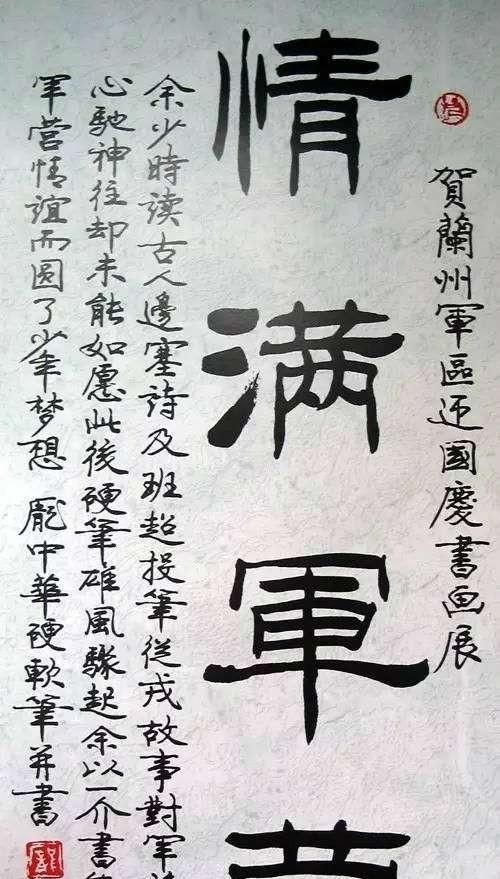 賀蘭州軍區迎國慶書画展
情满軍
余少時读古人邊塞詩及班超投筆從戎故事對軍
心馳神往却未能如愿此後硬筆雄風驟起余以一介書
軍营情誼而圆了少年梦想 龐中華硬軟筆并書